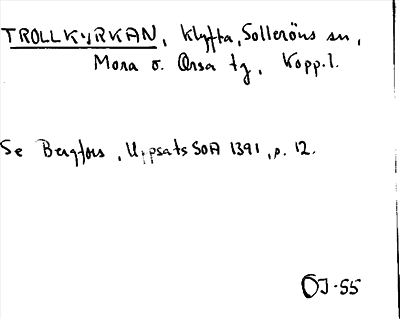 TROLLKYRKAN, klyfta, Solleröns sn,
Mora o. Orsa tg, Kopp.l.
Se Bergfors, Uppsats SOA 1391, p. 12.
OJ-55